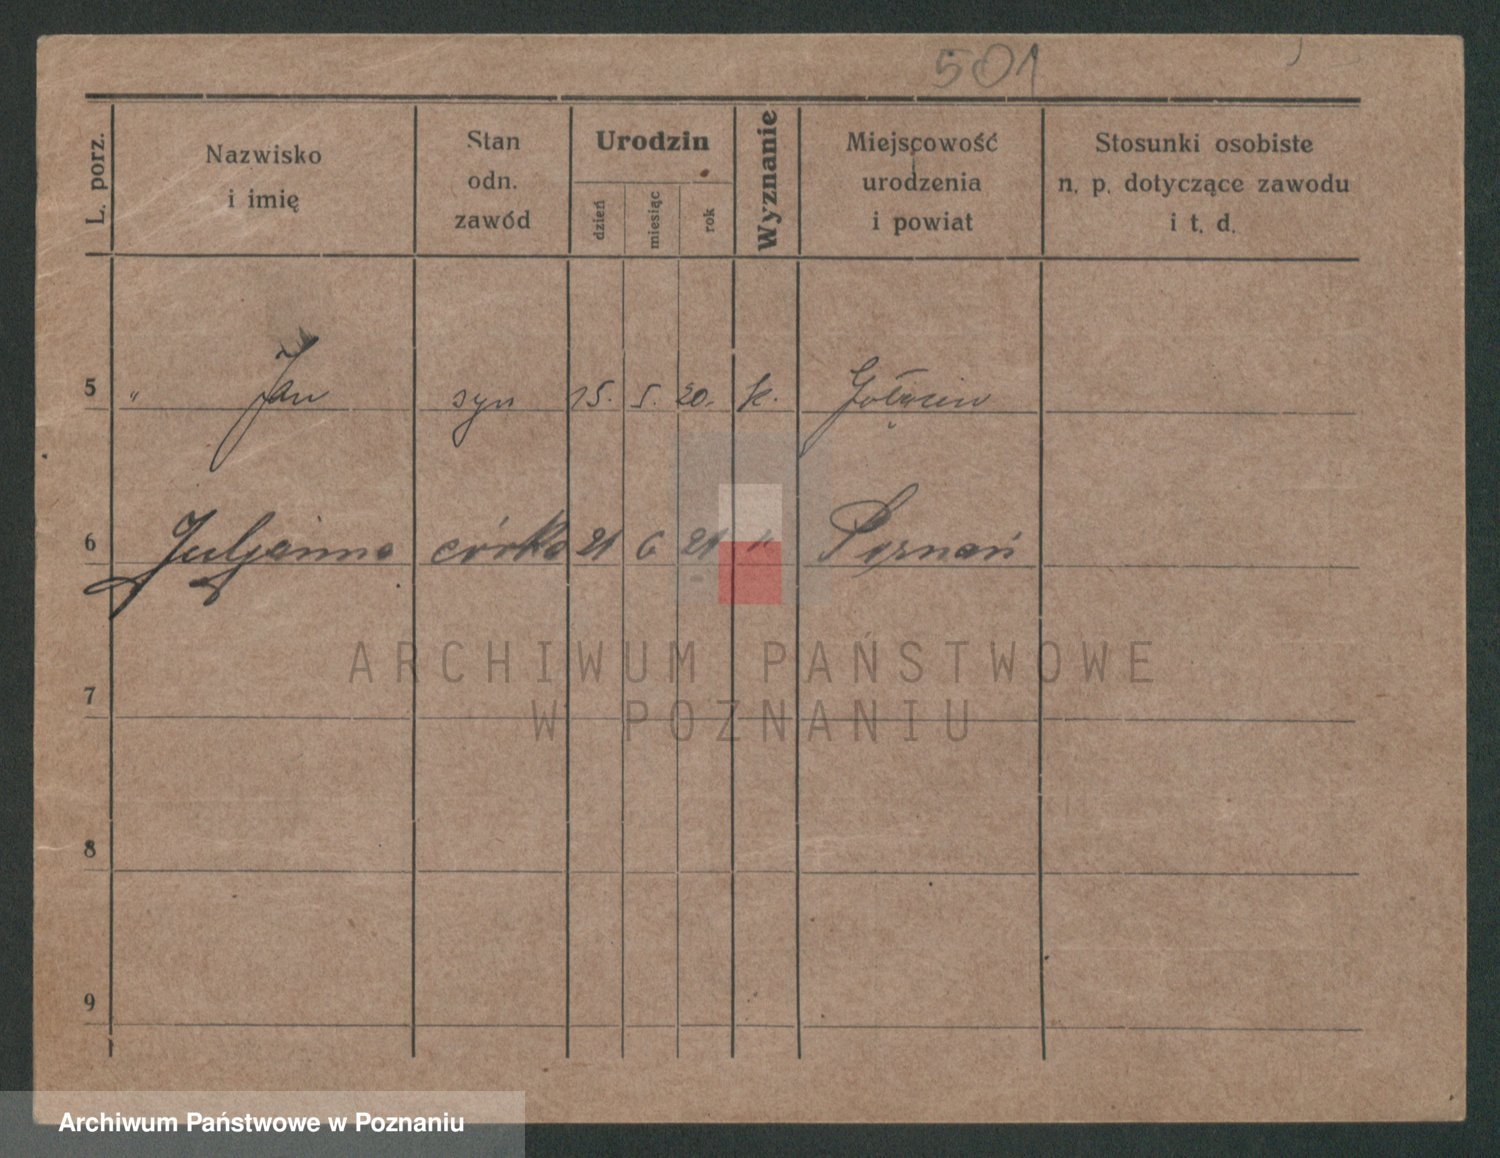 501
L. porz.
Nazwisko
i imię
Stan
odn.
zawód
Urodzin
dzień
miesiąc
rok
Wyznanie
Miejscowość
urodzenia
i powiat
Stosunki osobiste
n. p. dotyczące zawodu
i t. d.
5 " Jan syn 15. 5. 20. k.
6 Juljanna córka 21 6 21 " Poznań
7
8
9
ARCHIWUM PAŃSTWOWE
W POZNANIU
Archiwum Państwowe w Poznaniu